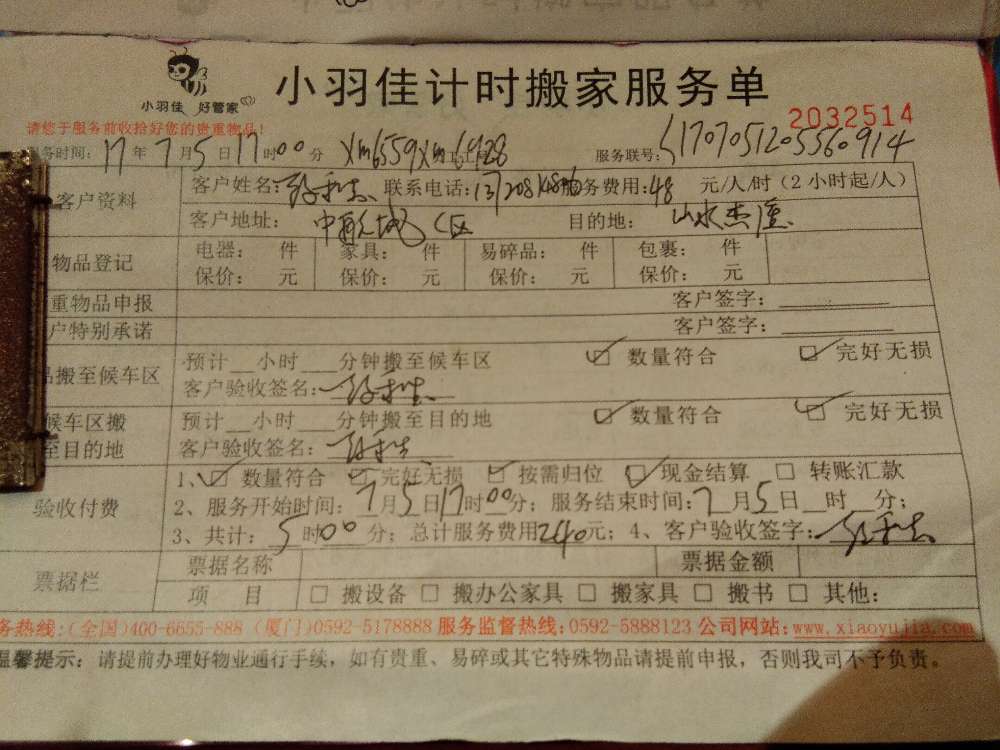 小羽佳 好管家
小羽佳计时搬家服务单
请您于服务前收拾好您的贵重物品!
2032514
务时间: 17年7月5日17时00分 Xm6559Xm6928 服务联号: S1707051205560914
客户资料
客户姓名: 联系电话: 务费用:48 元/人/时(2小时起/人)
客户地址: 目的地: 山水杰
物品登记
电器: 件 家具: 件 易碎品: 件 包裹: 件
保价: 元 保价: 元 保价: 元 保价: 元
重物品申报 客户签字:
户特别承诺 客户签字:
品搬至候车区
预计__小时___分钟搬至候车区 ☑ 数量符合 ☑ 完好无损
客户验收签名:
候车区搬
至目的地
预计__小时___分钟搬至目的地 ☑ 数量符合 ☑ 完好无损
客户验收签名:
验收付费
1、☑ 数量符合 ☑ 完好无损 ☑ 按需归位 ☑ 现金结算 □ 转账汇款
2、服务开始时间:7月5日17时00分; 服务结束时间:7月5日__时__分;
3、共计:5时00分; 总计服务费用240元; 4、客户验收签字:
票据栏
票据名称 票据金额
项 目 □ 搬设备 □ 搬办公家具 □ 搬家具 □ 搬书 □ 其他:
务热线:(全国)400-6655-888 (厦门)0592-5178888 服务监督热线:0592-5888123 公司网站:www.xiaoyujia.com
温馨提示: 请提前办理好物业通行手续，如有贵重、易碎或其它特殊物品请提前申报，否则我司不予负责。